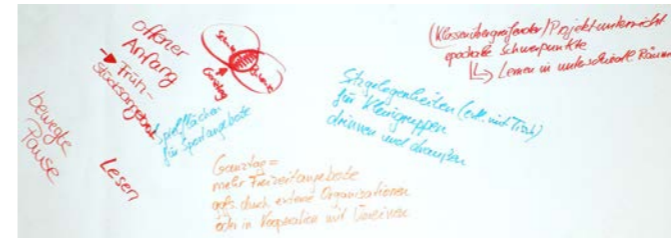 offener
Anfang
→ Früh-
stücksangebot
bewegte
Pause
Lesen
Spielflächen
für Sportangebote
Ganztag
Ganztag =
mehr Freizeitangebote
ggfs. durch externe Organisationen
oder in Kooperation mit Vereinen
Sitzgelegenheiten (evtl. mit Tisch)
für Kleingruppen
drinnen und draußen
(Klassenübergreifender) Projektunterricht
epochale Schwerpunkte
Lernen in unterschiedl. Räumen